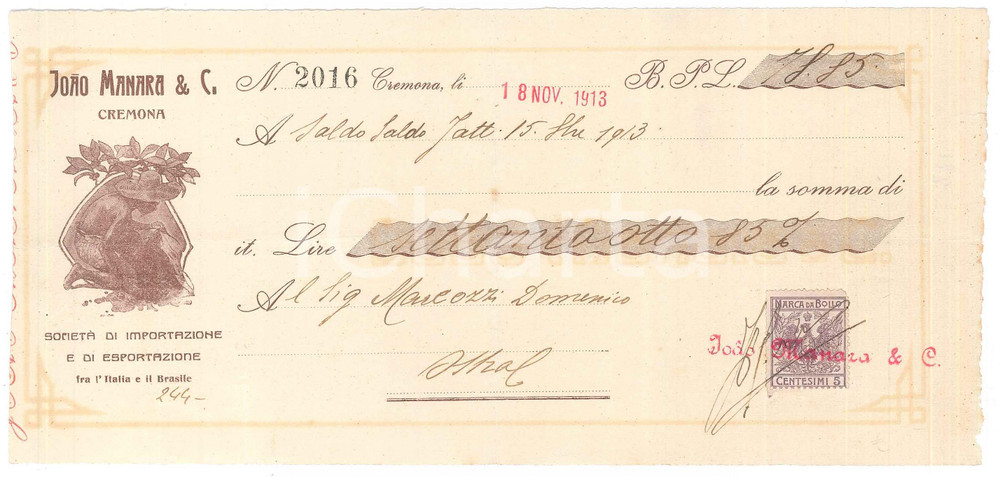 João Manara & C.
CREMONA
N. 2016 Cremona, li 18 NOV. 1913 B.P.L. 78.85
A Saldo Saldo Fatt. 15. 9bre 1913
la somma di
it. Lire settantaotto 85%
Al Sig Marcozzi Domenico
SOCIETÀ DI IMPORTAZIONE
E DI ESPORTAZIONE
fra l'Italia e il Brasile
244-
MARCA DA BOLLO
João Manara & C.
CENTESIMI 5
iCharta